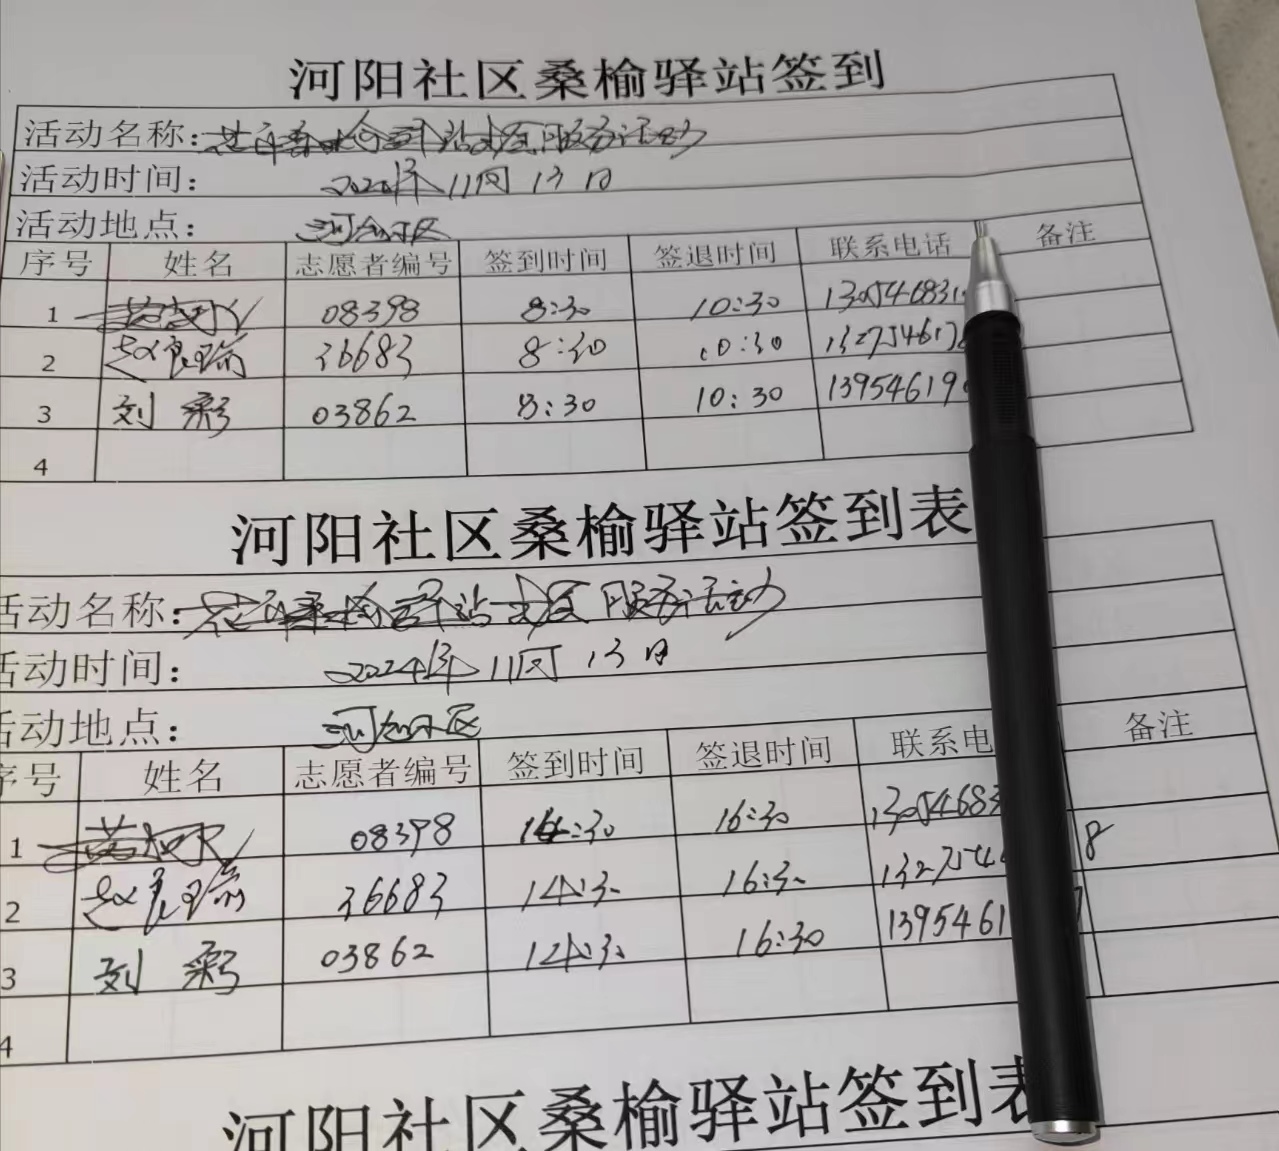 河阳社区桑榆驿站签到
活动名称: 站 服务活动
活动时间: 2024年11月13日
活动地点: 河阳社区
序号 姓名 志愿者编号 签到时间 签退时间 联系电话 备注
1 08398 8:30 10:30 130546831
2 赵良瑞 36683 8:30 10:30 132754617
3 刘彩 03862 8:30 10:30 13954619
4
河阳社区桑榆驿站签到表
活动名称: 站 服务活动
活动时间: 2024年11月13日
活动地点: 河阳社区
序号 姓名 志愿者编号 签到时间 签退时间 联系电 备注
1 08398 14:30 16:30 13054683 8
2 赵良瑞 36683 14:30 16:30 132754
3 刘彩 03862 14:30 16:30 1395461
4
河阳社区桑榆驿站签到表